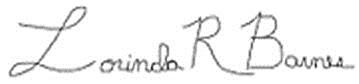 Lorinda R Barnes